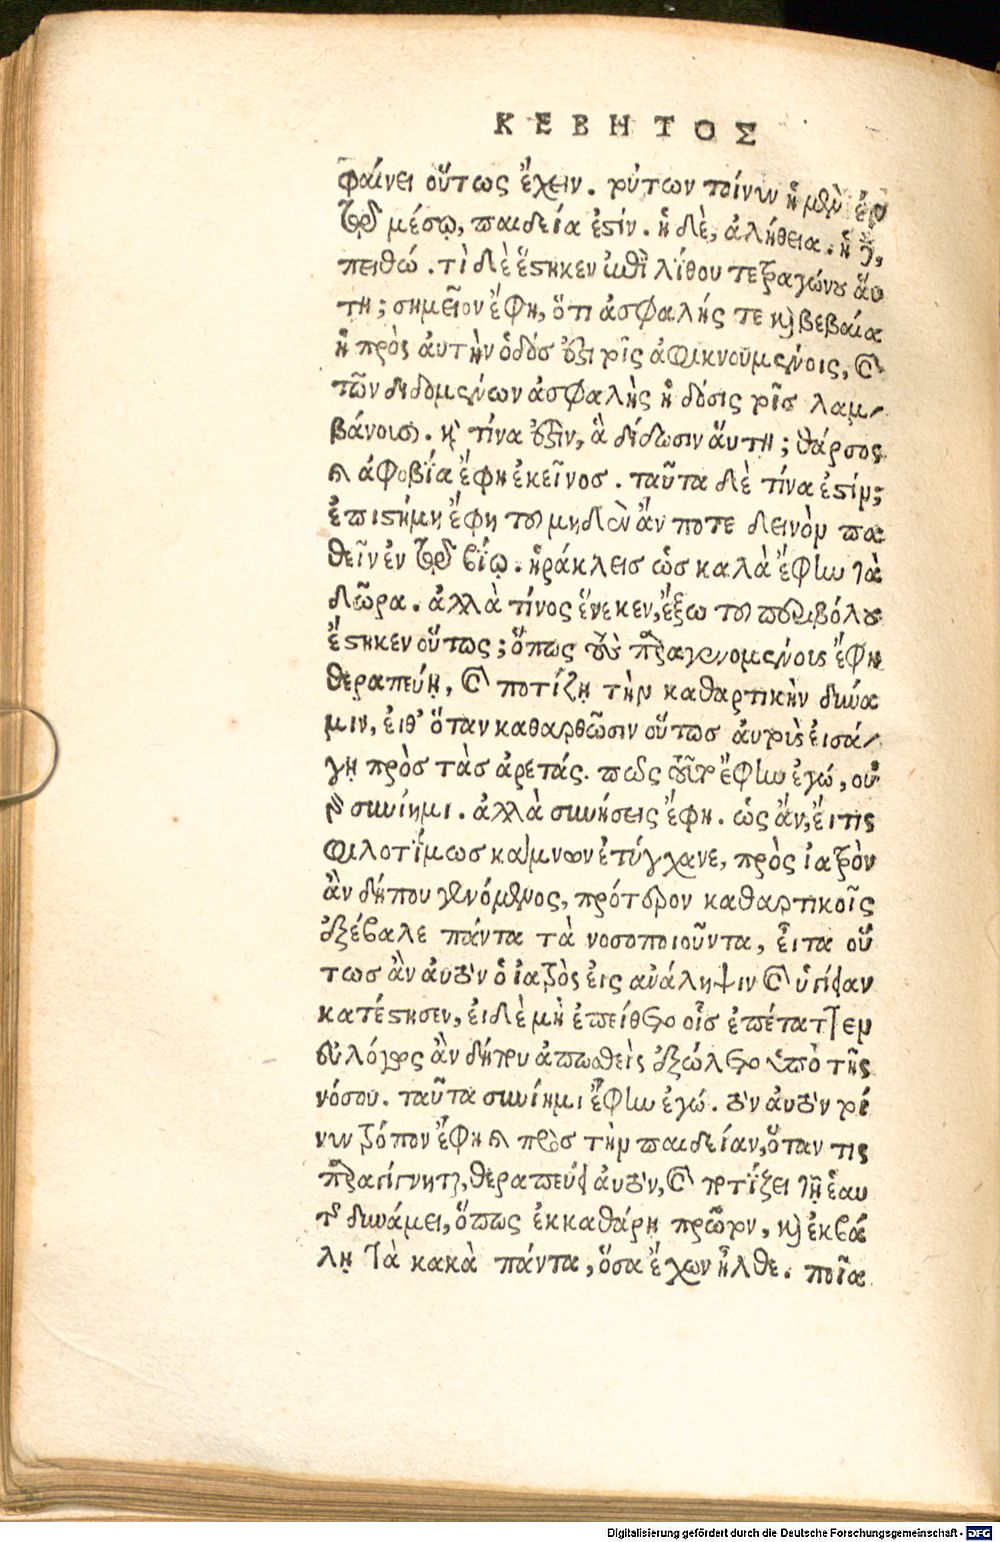 ΚΕΒΗΤΟΣ
φαίνει οὕτως ἔχειν. τούτων τοίνυν ἡ μὲν ἐν
τῷ μέσῳ, παιδεία ἐστίν. ἡ δὲ, ἀλήθεια. ἡ δὲ,
πειθώ. τί δὲ ἕστηκεν ἐπὶ λίθου τετραγώνου αὕ
τη; σημεῖον ἔφη, ὅτι ἀσφαλής τε καὶ βεβαία
ἡ πρὸς ἀυτὴν ὁδός ἐστι τοῖς ἀφικνουμένοις, καὶ
τῶν διδομένων ἀσφαλὴς ἡ δόσις τοῖς λαμ-
βάνουσι. καὶ τίνα ἐστὶν, ἃ δίδωσιν αὕτη; θάρσος
καὶ ἀφοβία ἔφη ἐκεῖνος. ταῦτα δὲ τίνα ἐστίν;
ἐπιστήμη ἔφη τοῦ μηδὲν ἄν ποτε δεινὸν πα
θεῖν ἐν τῷ βίῳ. ἡράκλεις ὡς καλὰ ἔφην τὰ
δῶρα. ἀλλὰ τίνος ἕνεκεν, ἔξω τοῦ περιβόλου
ἕστηκεν οὕτως; ὅπως τοὺς παραγενομένους ἔφη
θεραπεύῃ, καὶ ποτίζῃ τὴν καθαρτικὴν δύνα
μιν, εἶθ' ὅταν καθαρθῶσιν οὕτως ἀυτοὺς εἰσά-
γῃ πρὸς τὰς ἀρετάς. πῶς τοῦτο ἔφην ἐγώ, οὐ
γὰρ συνίημι. ἀλλὰ συνήσεις ἔφη. ὡς ἄν, εἴ τις
φιλοτίμως κάμνων ἐτύγχανε, πρὸς ἰατρὸν
ἂν δήπου γενόμενος, πρότερον καθαρτικοῖς
ἐξέβαλε πάντα τὰ νοσοποιοῦντα, εἶτα οὕ
τως ἂν ἀυτὸν ὁ ἰατρὸς εἰς ἀνάληψιν καὶ ὑγίειαν
κατέστησεν, εἰ δὲ μὴ ἐπείθετο οἷς ἐπέταττεν
εὐλόγως ἂν δήπου ἀπωσθεὶς ἐξώλετο ὑπὸ τῆς
νόσου. ταῦτα συνίημι ἔφην ἐγώ. τὸν ἀυτὸν τοί
νυν τρόπον ἔφη καὶ πρὸς τὴν παιδείαν, ὅταν τις
παραγίγνηται, θεραπεύει ἀυτὸν, καὶ ποτίζει τῇ ἑαυ
τῆς δυνάμει, ὅπως ἐκκαθάρῃ πρῶτον, καὶ ἐκβά
λῃ τὰ κακὰ πάντα, ὅσα ἔχων ἦλθε. ποῖα
Digitalisierung gefördert durch die Deutsche Forschungsgemeinschaft - DFG